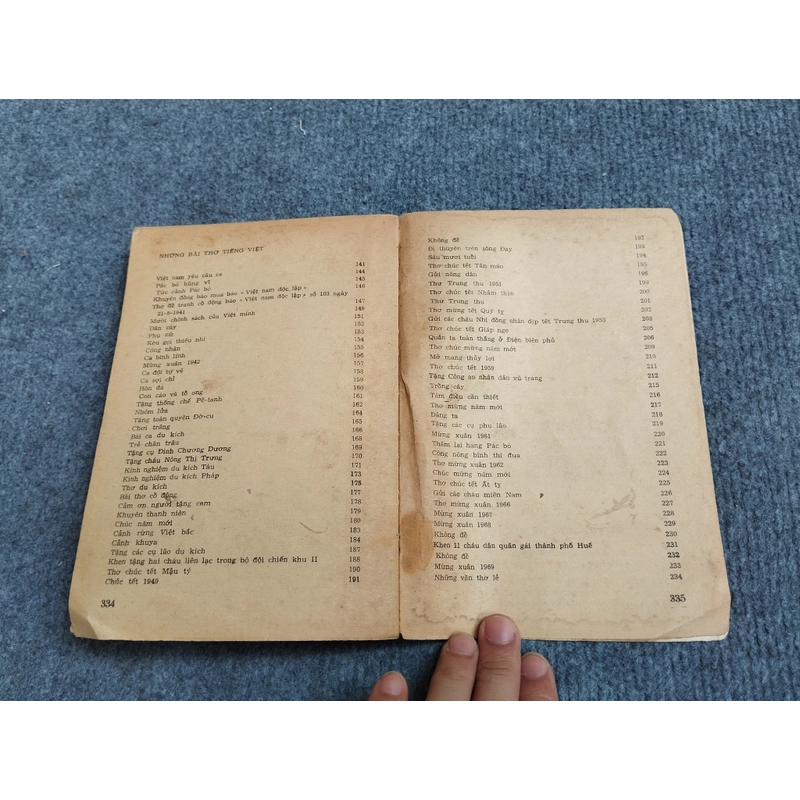 NHỮNG BÀI THƠ TIẾNG VIỆT
Việt nam yêu cầu ca 141
Pác bó hùng vĩ 144
Tức cảnh Pác bó 145
Khuyên đồng bào mua báo « Việt nam độc lập » 146
Thơ đề tranh cổ động báo « Việt nam độc lập » số 103 ngày
21-8-1941 147
Mười chính sách của Việt minh 149
Dân cày 151
Phụ nữ 152
Kêu gọi thiếu nhi 153
Công nhân 154
Ca binh lính 155
Mừng xuân 1942 156
Ca đội tự vệ 157
Ca sợi chỉ 158
Hòn đá 159
Con cáo và tổ ong 160
Tặng thống chế Pê-tanh 161
Nhóm lửa 162
Tặng toàn quyền Đờ-cu 164
Chơi trăng 165
Bài ca du kích 166
Trẻ chăn trâu 168
Tặng cụ Đinh Chương Dương 169
Tặng cháu Nông Thị Trưng 170
Kinh nghiệm du kích Tàu 171
Kinh nghiệm du kích Pháp 173
Thơ du kích 175
Bài thơ cổ động 177
Cảm ơn người tặng cam 178
Khuyên thanh niên 179
Chúc năm mới 180
Cảnh rừng Việt bắc 183
Cảnh khuya 184
Tặng các cụ lão du kích 187
Khen tặng hai cháu liên lạc trong bộ đội chiến khu II 188
Thơ chúc tết Mậu tý 190
Chúc tết 1949 191
334
Không đề 192
Đi thuyền trên sông Đáy 193
Sáu mươi tuổi 194
Thơ chúc tết Tân mão 195
Gửi nông dân 196
Thư Trung thu 1951 199
Thơ chúc tết Nhâm thìn 200
Thư Trung thu 201
Thơ mừng tết Quý tỵ 202
Gửi các cháu Nhi đồng nhân dịp tết Trung thu 1953 203
Thơ chúc tết Giáp ngọ 205
Quân ta toàn thắng ở Điện biên phủ 206
Thơ chúc mừng năm mới 209
Mở mang thủy lợi 210
Thơ chúc tết 1959 211
Tặng Công an nhân dân vũ trang 212
Trồng cây 215
Tám điều cần thiết 216
Thơ mừng năm mới 217
Đảng ta 218
Tặng các cụ phụ lão 219
Mừng xuân 1961 220
Thăm lại hang Pác bó 221
Công nông binh thi đua 222
Thơ mừng xuân 1962 223
Chúc mừng năm mới 224
Thơ chúc tết Ất tỵ 225
Gửi các cháu miền Nam 226
Thơ mừng xuân 1966 227
Mừng xuân 1967 228
Mừng xuân 1968 229
Không đề 230
Khen 11 cháu dân quân gái thành phố Huế 231
Không đề 232
Mừng xuân 1969 233
Những vần thơ lẻ 234
335